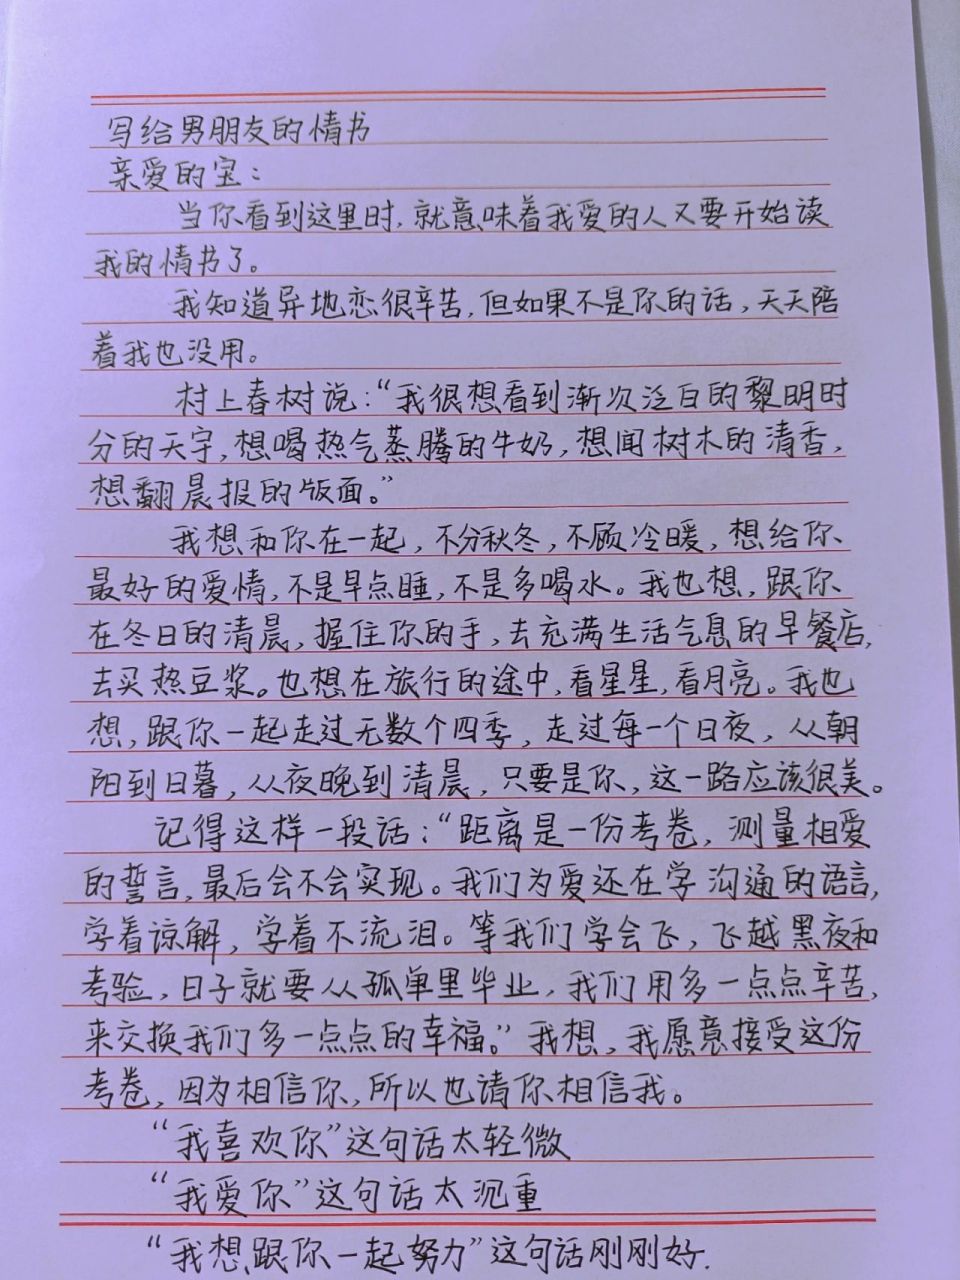 写给男朋友的情书
亲爱的宝：
当你看到这里时，就意味着我爱的人又要开始读
我的情书了。
我知道异地恋很辛苦，但如果不是你的话，天天陪
着我也没用。
村上春树说：“我很想看到渐次泛白的黎明时
分的天宇，想喝热气蒸腾的牛奶，想闻树木的清香，
想翻晨报的版面。”
我想和你在一起，不分秋冬，不顾冷暖，想给你
最好的爱情，不是早点睡，不是多喝水。我也想，跟你
在冬日的清晨，握住你的手，去充满生活气息的早餐店，
去买热豆浆。也想在旅行的途中，看星星，看月亮。我也
想，跟你一起走过无数个四季，走过每一个日夜，从朝
阳到日暮，从夜晚到清晨，只要是你，这一路应该很美。
记得这样一段话：“距离是一份考卷，测量相爱
的誓言，最后会不会实现。我们为爱还在学沟通的语言，
学着谅解，学着不流泪。等我们学会飞，飞越黑夜和
考验，日子就要从孤单里毕业，我们用多一点点辛苦，
来交换我们多一点点的幸福。”我想，我愿意接受这份
考卷，因为相信你，所以也请你相信我。
“我喜欢你”这句话太轻微
“我爱你”这句话太沉重
“我想跟你一起努力”这句话刚刚好.